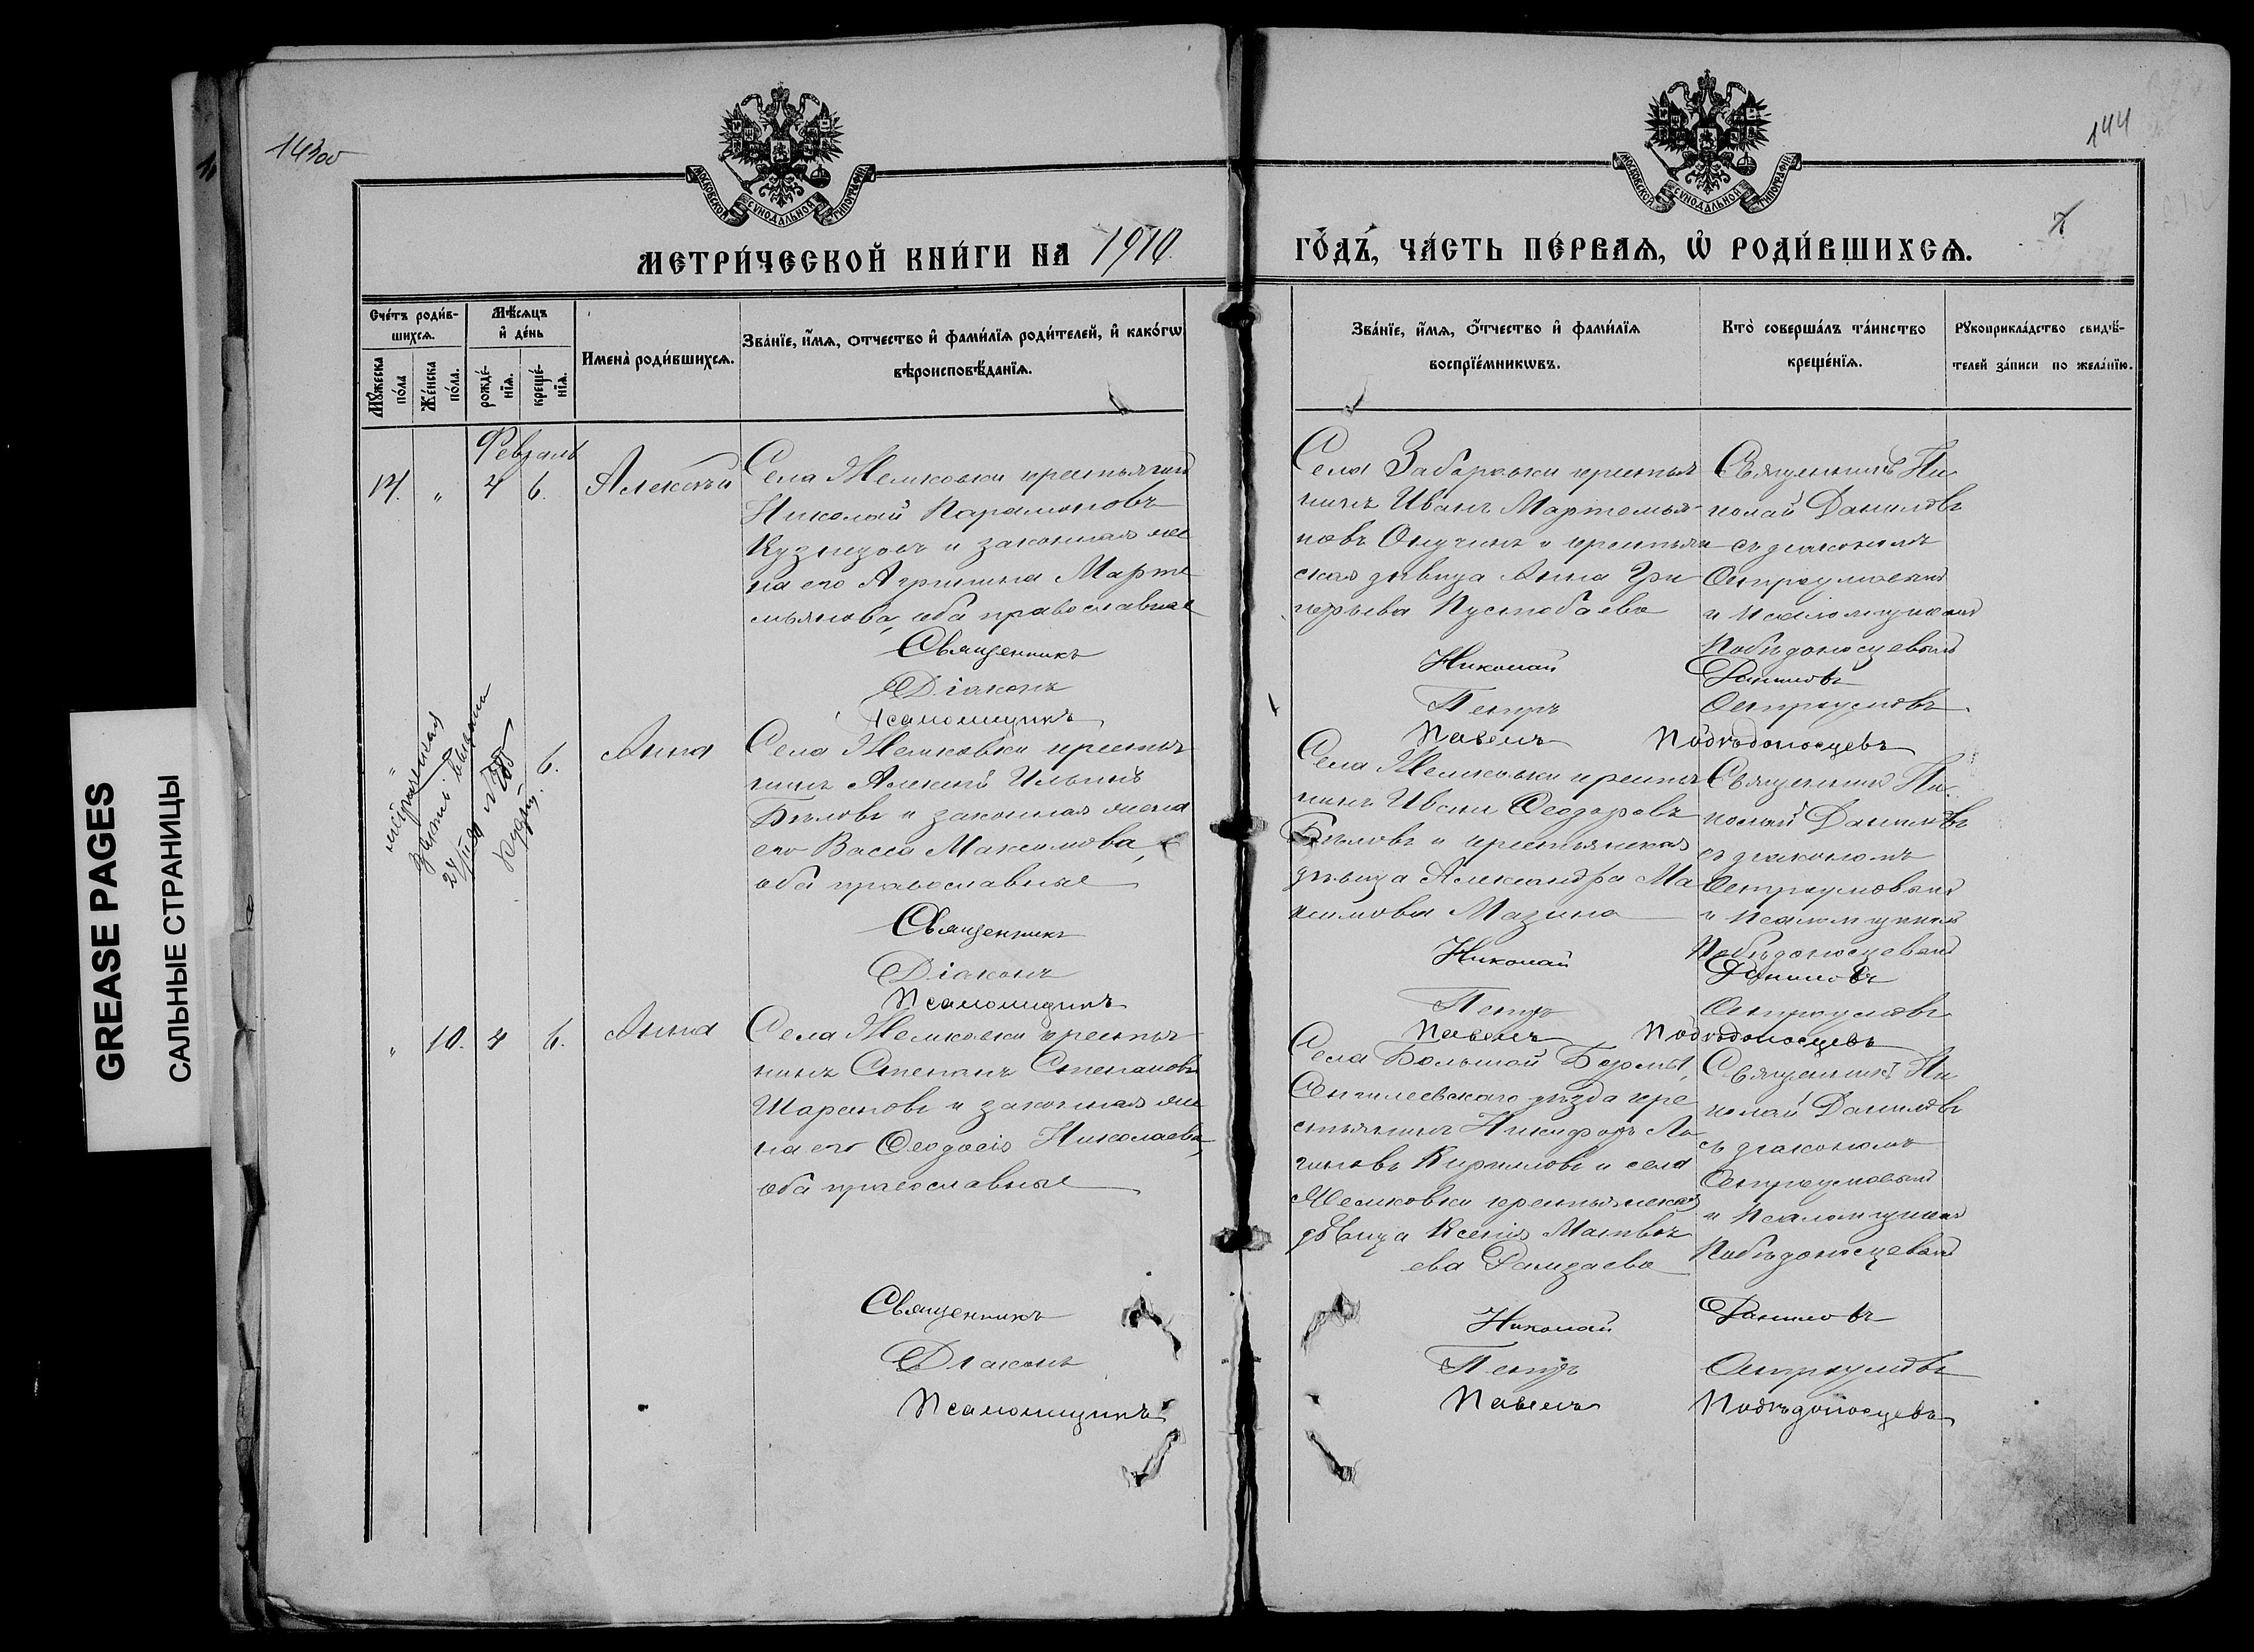 GREASE PAGES
САЛЬНЫЕ СТРАНИЦЫ
144
МОСКОВСКОЙ СѴНОДАЛЬНОЙ ТИПОГРАФІИ
МОСКОВСКОЙ СѴНОДАЛЬНОЙ ТИПОГРАФІИ
МЕТРИ́ЧЕСКОЙ КНИ́ГИ НА 1910
ГО́ДЪ, ЧА́СТЬ ПЕ́РВАѦ, Ѡ҆ РОДИ́ВШИХСѦ.
Сче́тъ роди́в-
шихсѧ.
Мꙋ́жеска по́ла
Же́нска по́ла.
Мѣ́сѧцъ
и҆ де́нь
рожде́-нїѧ.
креще́-нїѧ.
Имена̀ роди́вшихсѧ.
Зва́нїе, и҆́мѧ, ѻ҆́тчество и҆ фами́лїѧ роди́телей, и҆ како́гѡ
вѣроисповѣ́данїѧ.
Зва́нїе, и҆́мѧ, ѻ҆́тчество и҆ фами́лїѧ
воспрїе́мникѡвъ.
Кто̀ соверша́лъ та́инство
креще́нїѧ.
Рꙋкоприкла́дство свидѣ́-
телей за́писи по жела́нїю.
Февраль
14. " 4 6. Алексѣй
Села Жемковки крестьянинъ
Николай Парамоновъ
Кузнецовъ и законная же
на его Агрипина Марте
мьянова, оба православные
Священникъ
Діаконъ
Псаломщикъ
Села Заборовки крестья
нинъ Иванъ Мартемья
новъ и крестьян
ская дѣвица Анна Гри
горьева Пустобаева
Николай
Петръ
Павелъ
Священникъ Ни
колай Даниловъ
съ діакономъ
Остроумовымъ
и псаломщикомъ
Побѣдоносцевымъ
Даниловъ
Остроумовъ
Побѣдоносцевъ
6. Анна
Села Жемковки крестья
нинъ Алексѣй Ильинъ
Бѣловъ и законная жена
его Васса Максимова,
оба православные
Священникъ
Діаконъ
Псаломщикъ
Села Жемковки крестья
нинъ Иванъ Ѳеодоровъ
Бѣловъ и крестьянская
дѣвица Александра Ма
ксимова Мазина
Николай
Петръ
Павелъ
Священникъ Ни
колай Даниловъ
съ діакономъ
Остроумовымъ
и псаломщикомъ
Побѣдоносцевымъ
Даниловъ
Остроумовъ
Побѣдоносцевъ
" 10. 4 6. Анна
Села Жемковки крестья
нинъ Степанъ Степановъ
Шароновъ и законная же
на его Ѳеодосія Николаева,
оба православные
Священникъ
Діаконъ
Псаломщикъ
Села Большой Борлы,
Сенгилеевскаго уѣзда кре
стьянинъ Никифоръ Ло
гиновъ Кириловъ и села
Жемковки крестьянская
дѣвица Ксенія Матвѣ
ева
Николай
Петръ
Павелъ
Священникъ Ни
колай Даниловъ
съ діакономъ
Остроумовымъ
и псаломщикомъ
Побѣдоносцевымъ
Даниловъ
Остроумовъ
Побѣдоносцевъ